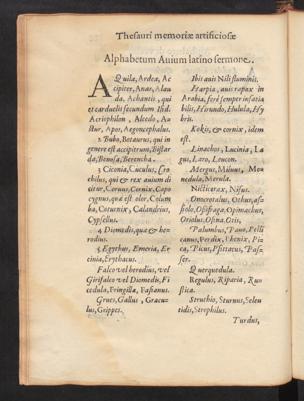 Thesauri memoriæ artificiosæ
Alphabetum Avium latino sermone.
AQuila, Ardea, Ac
cipiter, Anas, Alau
da, Achantis, qui
et carduelis secundum Isid.
Acrisphilon, Alcedo, Au
stur, Apos, Aegoncephalus.
2 Bubo, Botaurus, qui in
genere est accipitrum, Bistar
da, Bonosa, Berencha.
3 Ciconia, Cuculus, Cro
chilus, qui & rex avium di
citur, Corvus, Cornix, Capo
cygnus, qui & est olor, Colum
ba, Coturnix, Calandrius,
Cypsellus.
4 Diomedis, quæ & he
rodius.
5 Egythus, Emeria, Er
cinia, Erythacus.
Falco vel herodius, vel
Girifalco vel Diomedis, Fi
cedula, Fringilla, Fasianus.
Grues, Gallus, Gracu
lus, Grippes.
Ibis avis Nili fluminis.
Harpia, avis rapax in
Arabia, fert semper insatia
bilis, Hirundo, Hulula, Hy
bris.
Kokis, & cornix, idem
est.
Linachos, Lucinia, La
gus, Laro, Leucon.
Mergus, Milvus, Mo
nedula, Merula.
Nicticorax, Nisus.
Onocrotalus, Othus, 
Opimachus,
Oriolus, Osina, Otis.
Palumbus, Pavo, Pelli
canus, Perdix, Phenix, Pi
ca, Picus, Psittacus, Pas
ser.
Querquedula.
Regulus, Riparia, Ru
sticæ.
Struthio, Sturnus, Seleu
cidis, Strophilus.
Turdus,